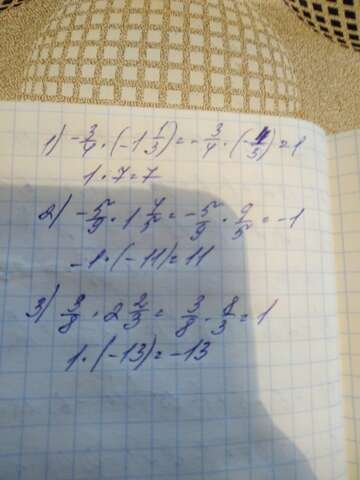 1) -3/4 · (-1 1/3) = -3/4 · (-4/3) = 1
1 · 7 = 7
2) -5/9 · 1 4/5 = -5/9 · 9/5 = -1
-1 · (-11) = 11
3) 3/8 · 2 2/3 = 3/8 · 8/3 = 1
1 · (-13) = -13